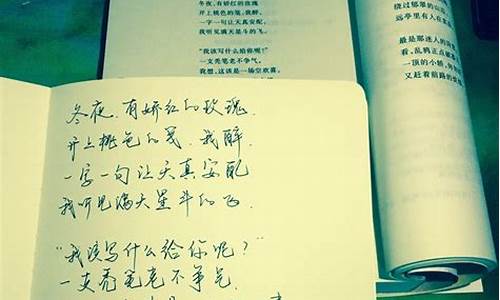 冬夜,有娇红的玫瑰
开上桃色的笺,我醉,
一字一句让天真安配,
我听见满天星斗的飞。
“我该写什么给你呢?”
一支秃笔老不争气,
我想,这该是一场空欢喜,
绕过郁翠的山
远亭里有人在
最是那迷人的
看,乱鸦正点破
一顶的小轿,
又赶着前路的
冬夜,有娇红的玫瑰,
开上桃色的笺,我醉,
一字一句让天真安配
我听见满天星斗的飞
“我该写什么给你呢?”
一支秃笔老不争气,